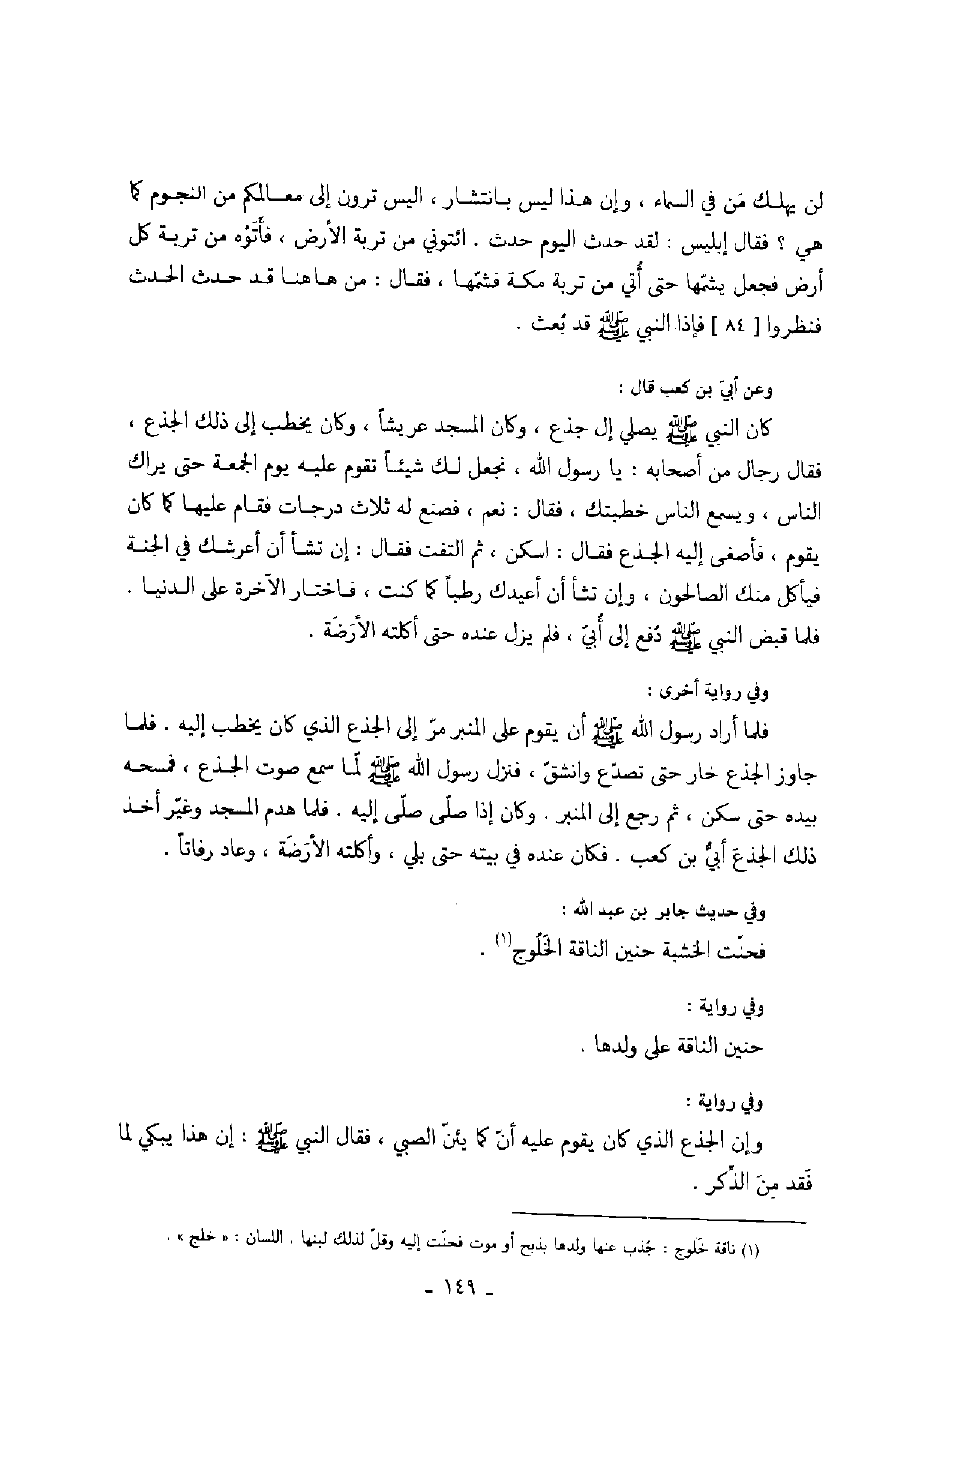 لن يهلك مَن في السماء ، وإن هذا ليس بانتشار ، اليس ترون إلى معالمكم من النجوم كما
هي ؟ فقال إبليس : لقد حدث اليوم حدث . ائتوني من تربة الأرض ، فأَتَوْه من تربة كل
أرض فجعل يشمّها حتى أُتي من تربة مكة فشمّها ، فقال : من هاهنا قد حدث الحدث
فنظروا [ ٨٤ ] فإذا النبي ﷺ قد بُعث .
وعن أبيّ بن كعب قال :
كان النبي ﷺ يصلي إل جذع ، وكان المسجد عريشاً ، وكان يخطب إلى ذلك الجذع ،
فقال رجال من أصحابه : يا رسول الله ، نجعل لك شيئاً تقوم عليه يوم الجمعة حتى يراك
الناس ، ويسمع الناس خطبتك ، فقال : نعم ، فصنع له ثلاث درجات فقام عليها كما كان
يقوم ، فأصغى إليه الجذع فقال : اسكن ، ثم التفت فقال : إن تشأ أن أغرسك في الجنة
فيأكل منك الصالحون ، وإن تشأ أن أعيدك رطباً كما كنت ، فاختار الآخرة على الدنيا .
فلما قبض النبي ﷺ دُفع إلى أُبيّ ، فلم يزل عنده حتى أكلته الأرَضَة .
وفي رواية أخرى :
فلما أراد رسول الله ﷺ أن يقوم على المنبر مرّ إلى الجذع الذي كان يخطب إليه . فلما
جاوز الجذع خار حتى تصدّع وانشقّ ، فنزل رسول الله ﷺ لمّا سمع صوت الجذع ، فمسحه
بيده حتى سكن ، ثم رجع إلى المنبر . وكان إذا صلّى صلّى إليه . فلما هدم المسجد وغيّر أخذ
ذلك الجذعَ أبيُّ بن كعب . فكان عنده في بيته حتى بلي ، وأكلته الأرَضَة ، وعاد رفاتاً .
وفي حديث جابر بن عبد الله :
فحنّت الخشبة حنين الناقة الخَلُوج(١) .
وفي رواية :
حنين الناقة على ولدها .
وفي رواية :
وإن الجذع الذي كان يقوم عليه أنّ كما يئنّ الصبي ، فقال النبي ﷺ : إن هذا يبكي لما
فَقد مِنَ الذّكر .
(١) ناقة خَلوج : جُذب عنها ولدها بذبح أو موت فحنّت إليه وقلّ لذلك لبنها . اللسان : « خلج » .
- ١٤٩ -